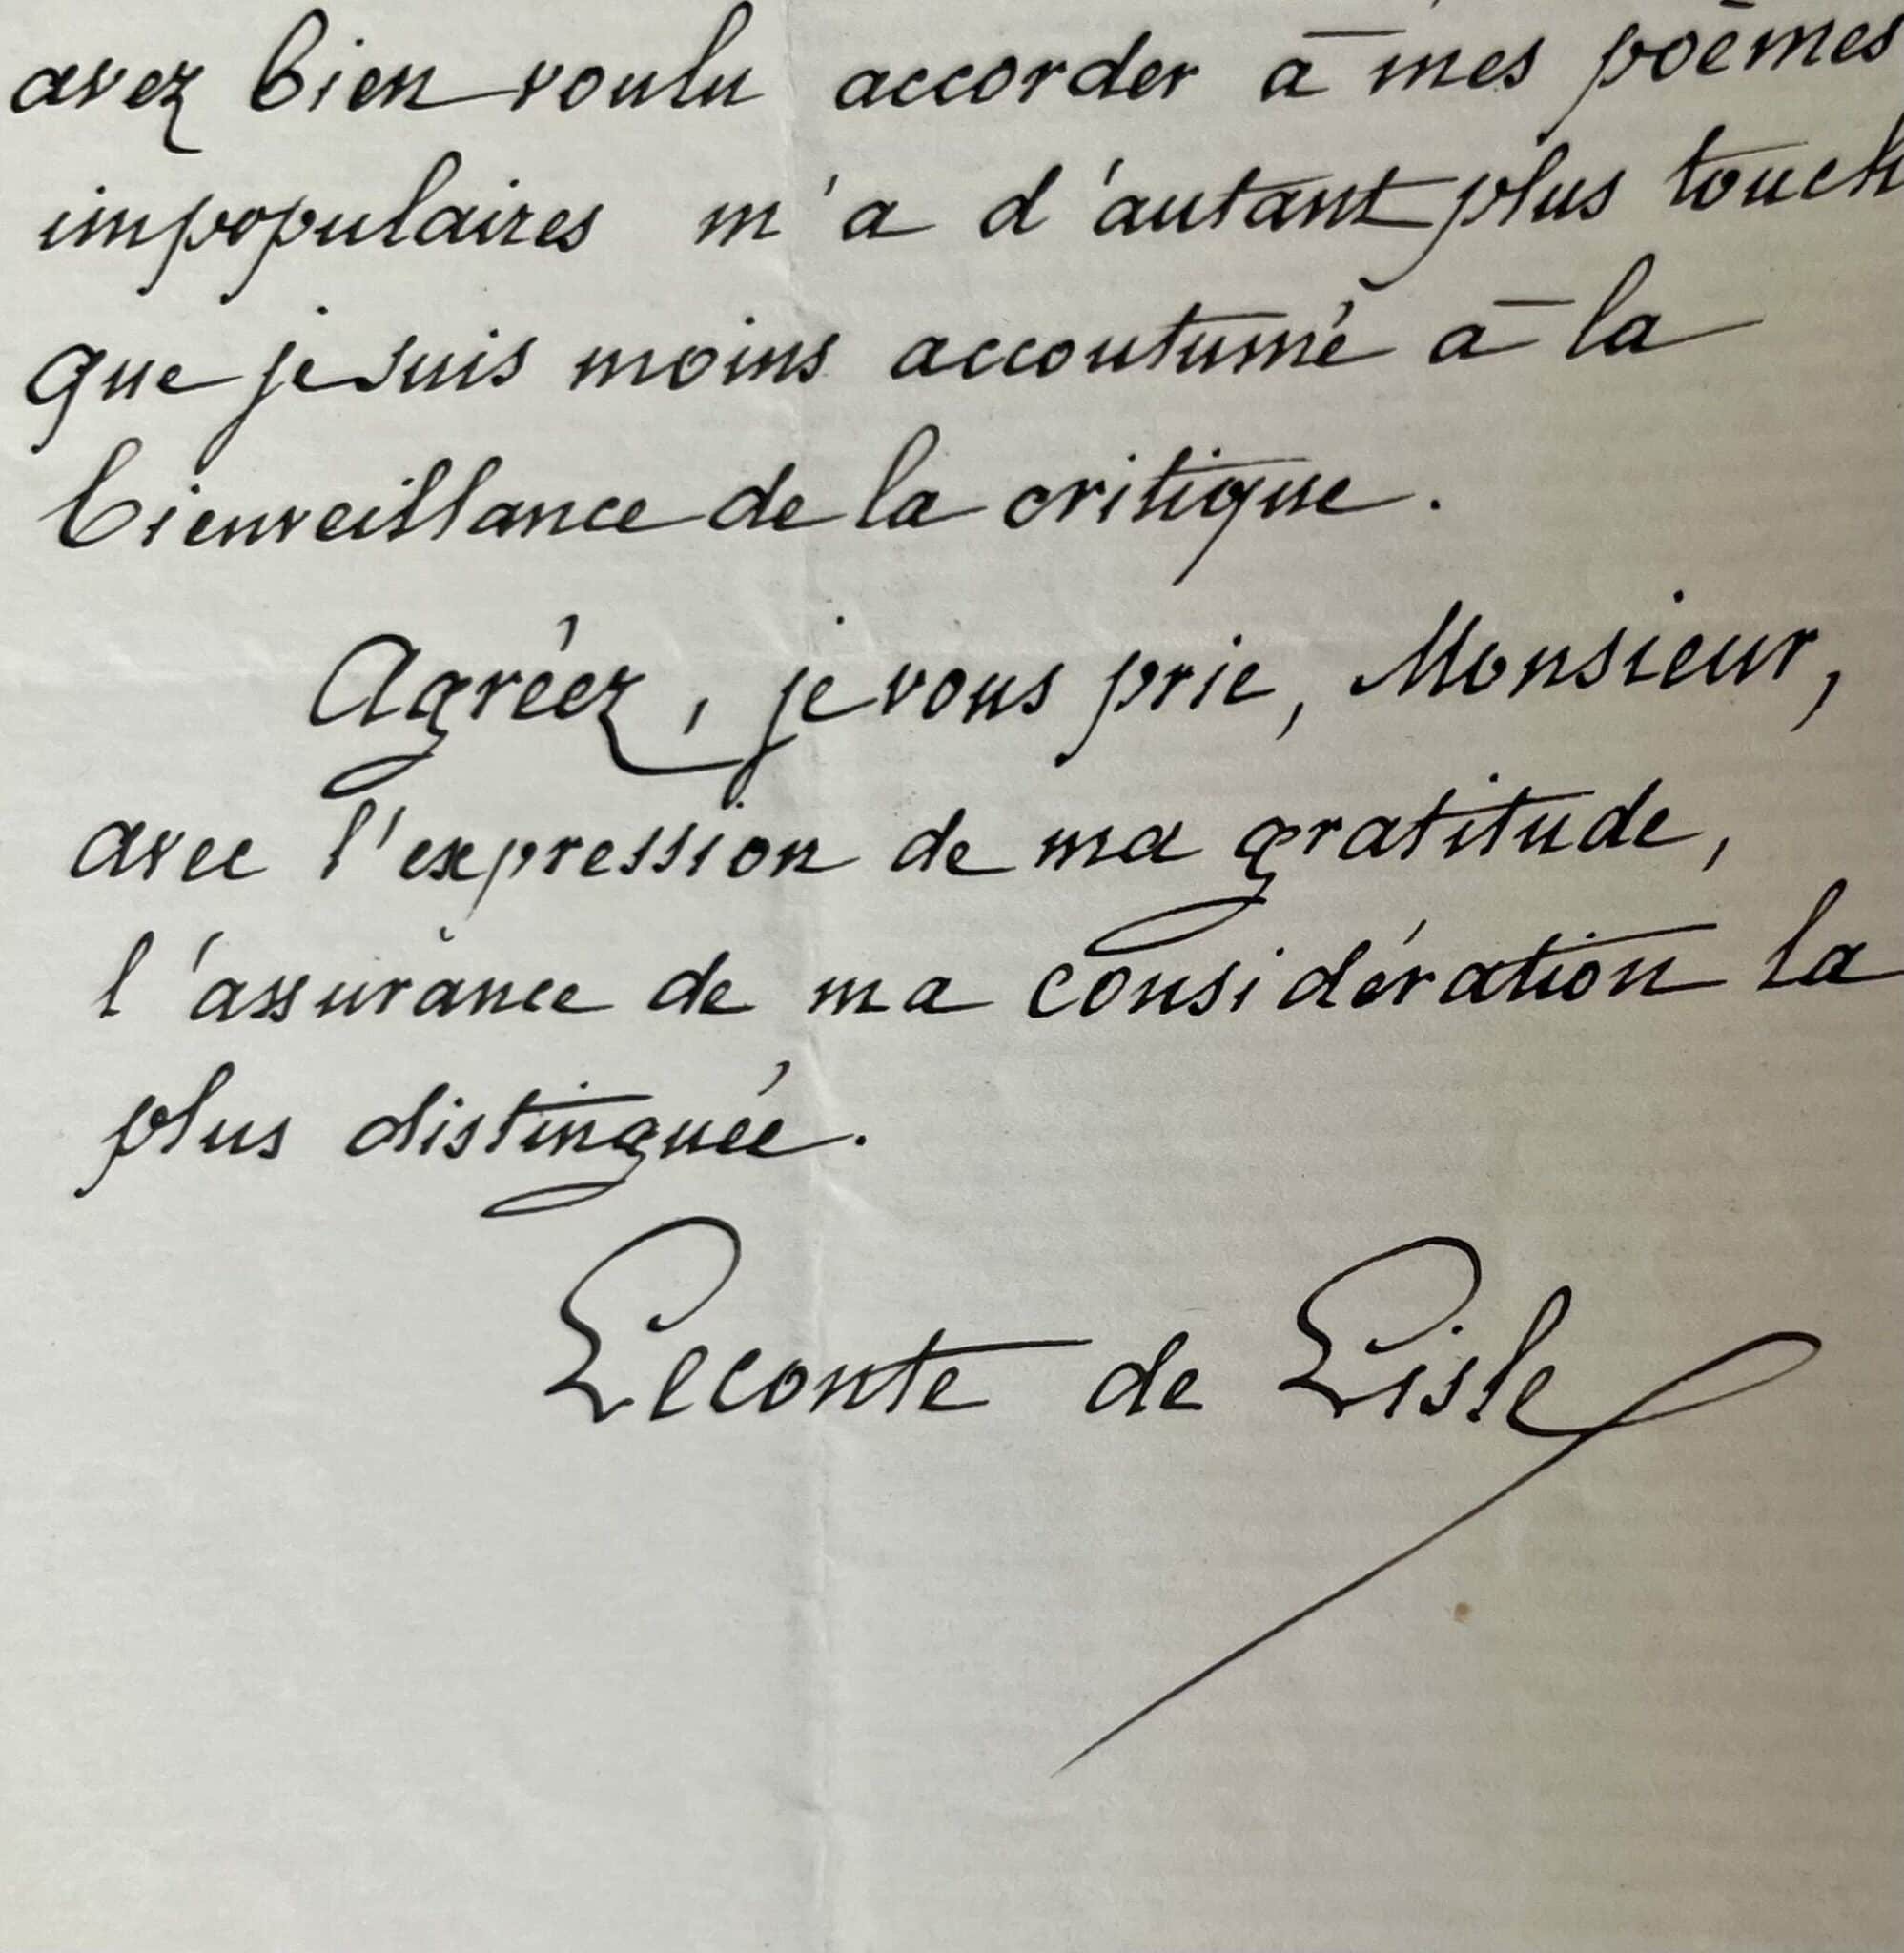 avez bien voulu accorder à mes poëmes
impopulaires m'a d'autant plus touch
que je suis moins accoutumé à la
bienveillance de la critique.
Agréez, je vous prie, Monsieur,
avec l'expression de ma gratitude,
l'assurance de ma considération la
plus distinguée.
Leconte de Lisle